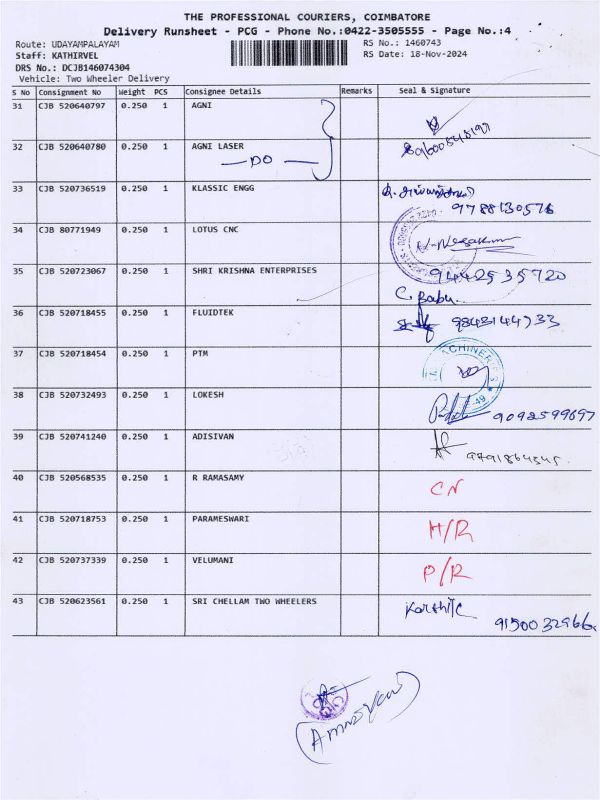 THE PROFESSIONAL COURIERS, COIMBATORE
Delivery Runsheet - PCG - Phone No.:0422-3505555 - Page No.:4
Route: UDAYAMPALAYAM
RS No.: 1460743
Staff: KATHIRVEL
RS Date: 18-Nov-2024
DRS No.: DCJB146074304
Vehicle: Two Wheeler Delivery
S No Consignment No Weight PCS Consignee Details Remarks Seal & Signature
31 CJB 520640797 0.250 1 AGNI
32 CJB 520640780 0.250 1 AGNI LASER
DO
33 CJB 520736519 0.250 1 KLASSIC ENGG
9788130576
34 CJB 80771949 0.250 1 LOTUS CNC
35 CJB 520723067 0.250 1 SHRI KRISHNA ENTERPRISES
9442535720
C. Babu
36 CJB 520718455 0.250 1 FLUIDTEK
9843144733
37 CJB 520718454 0.250 1 PTM
38 CJB 520732493 0.250 1 LOKESH
9092599697
39 CJB 520741240 0.250 1 ADISIVAN
9791864345
40 CJB 520568535 0.250 1 R RAMASAMY CN
41 CJB 520718753 0.250 1 PARAMESWARI H/R
42 CJB 520737339 0.250 1 VELUMANI P/R
43 CJB 520623561 0.250 1 SRI CHELLAM TWO WHEELERS Karthik